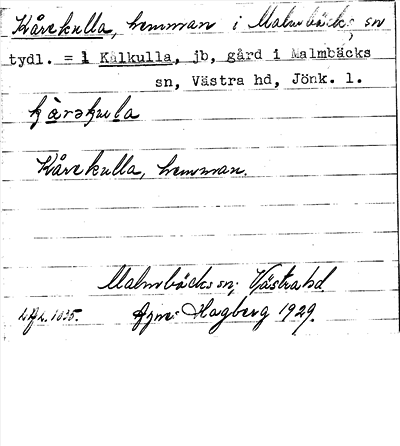 Kårekulla, hemman i Malmbäcks sn
tydl. = 1 Kålkulla, jb, gård i Malmbäcks
sn, Västra hd, Jönk. l.
kàrəkula
Kårekulla, hemman.
Malmbäcks sn, Västra hd
1035. Hagberg 1929.